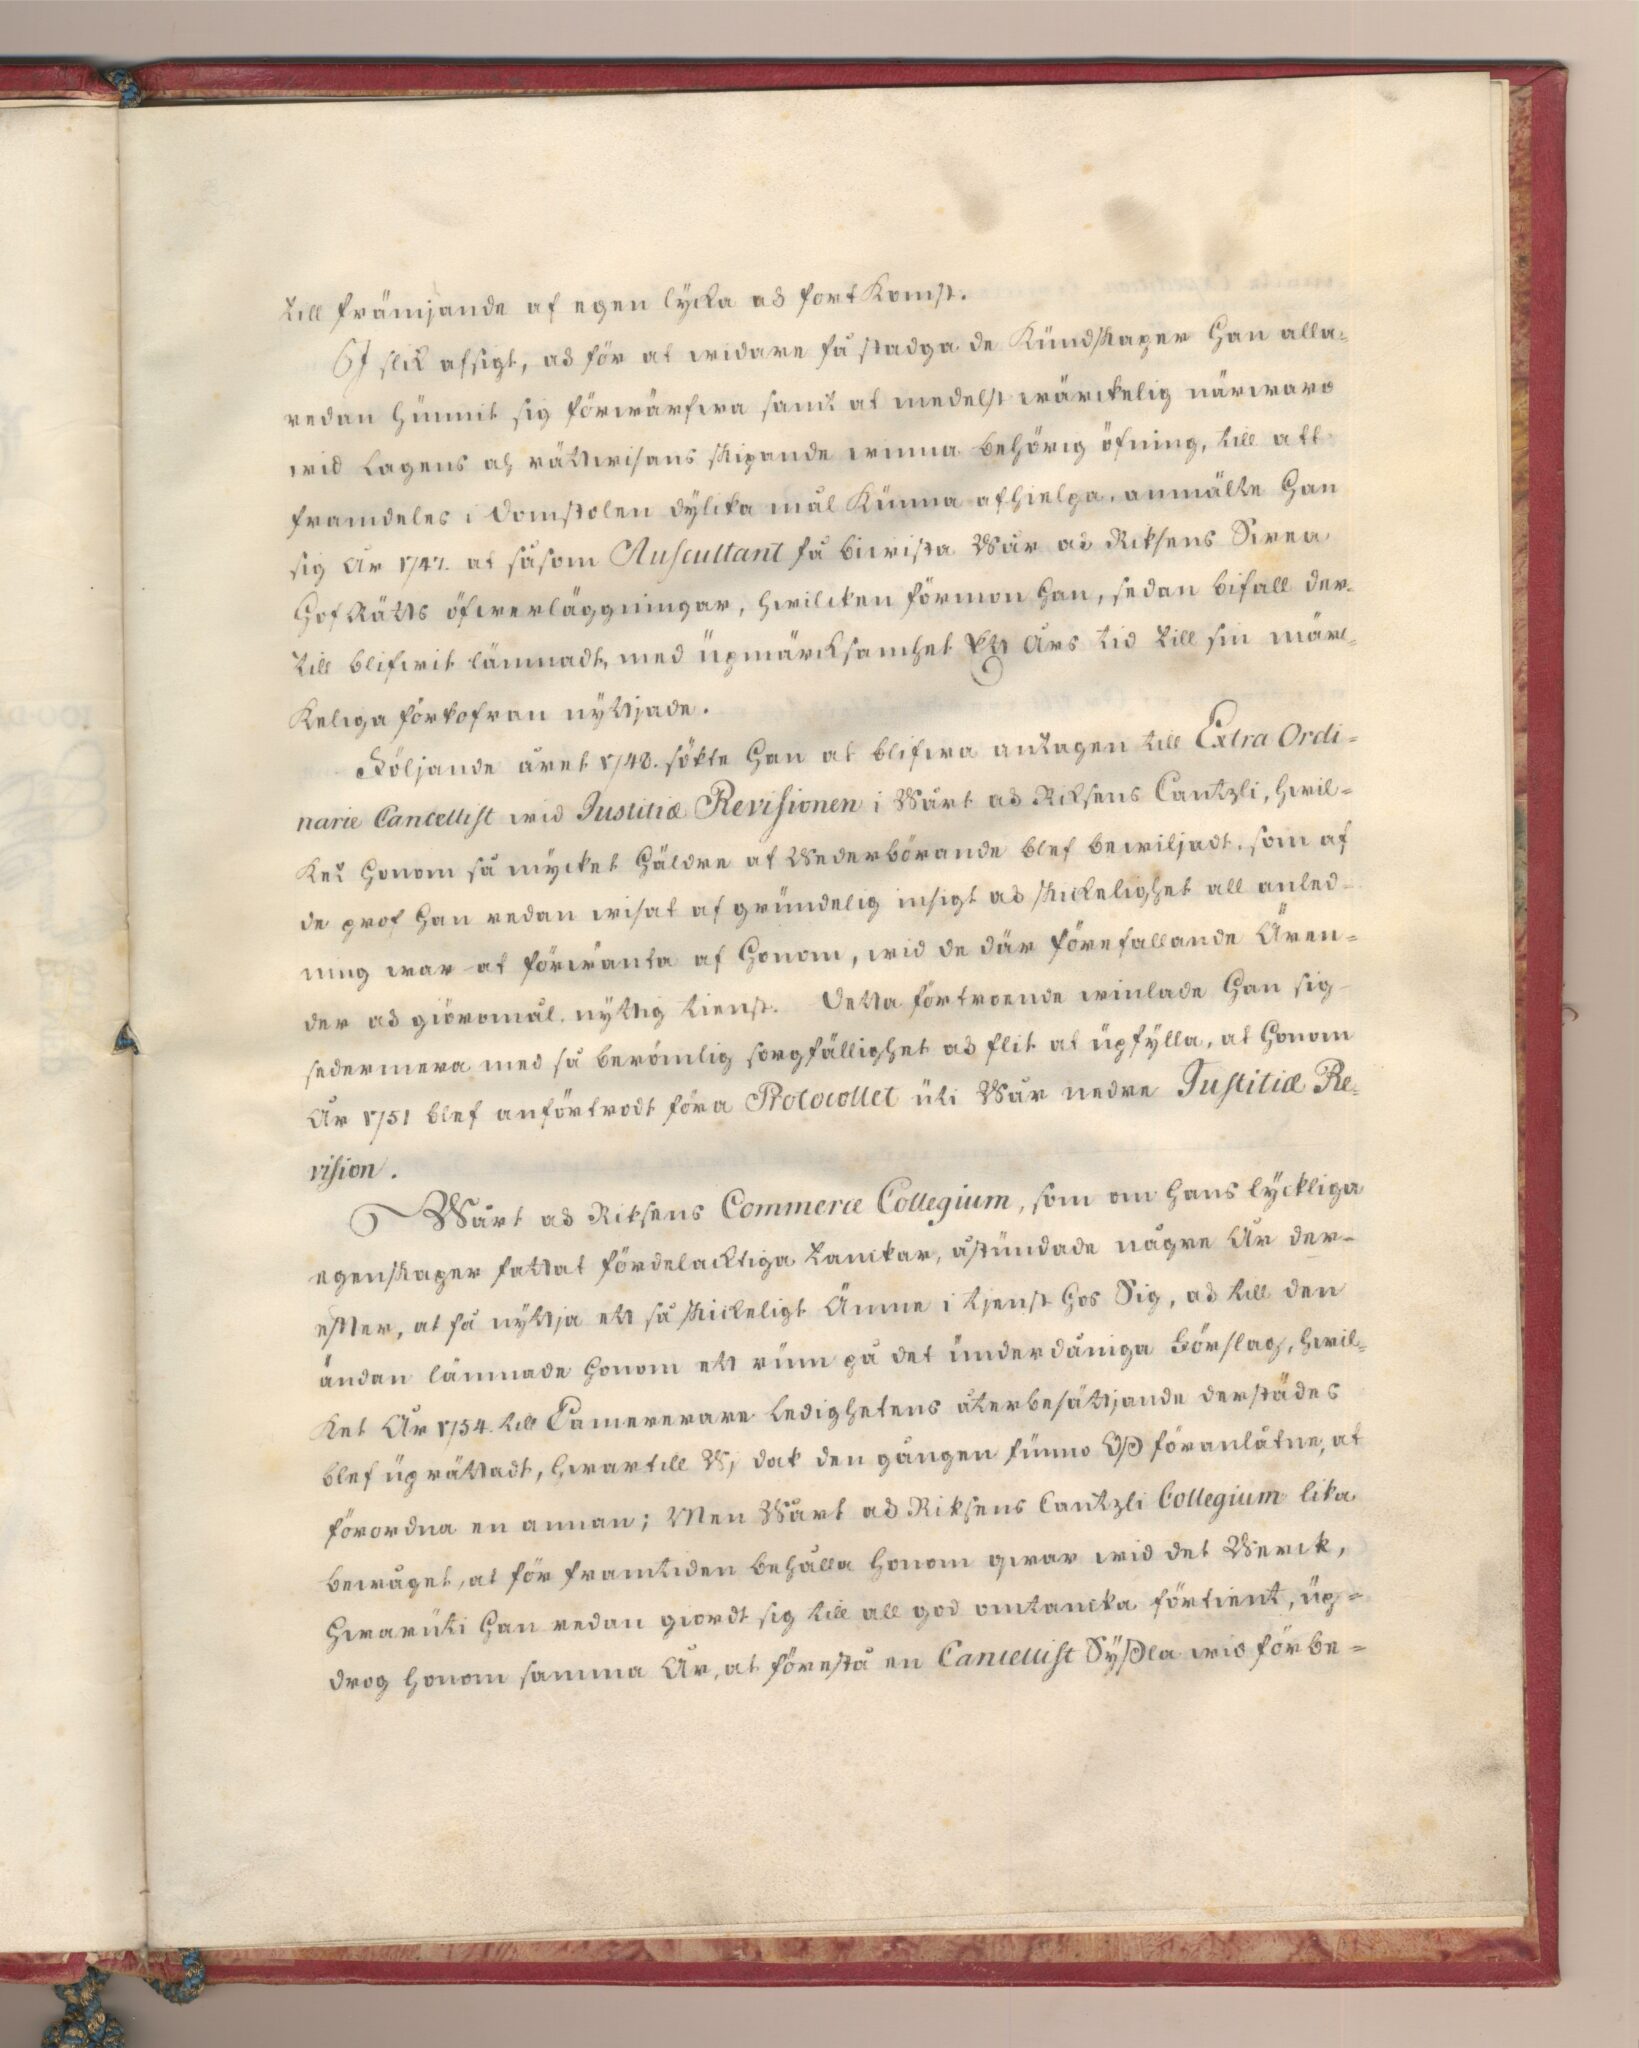 till främjande af egen lycka och fortkomst.
I slik afsigt, och för at widare få stadga de Kundskaper Han alla-
redan hunnit sig förwärfwa samt at medelst wärckelig närwaro
wid Lagens och rättwisans skipande winna behörig öfning, till att
framdeles i Domstolen dylicka mål Kunna afhielpa, anmälte Han
sig År 1747. at såsom Auscultant få biwista Wår och Riksens Swea
Hof Rätts öfwerläggningar, hwilcken förmon Han, sedan bifall der-
till blifwit lämnadt, med upmärcksamhet ett Års tid till sin märc-
keliga förkofran nyttjade.
Följande året 1748. sökte Han at blifwa antagen till Extra Ordi-
narie Cancellist wid Justitiæ Revisionen i Wårt och Riksens Cantzli, hwil-
ket Honom så mycket Häldre af Wederbörande blef bewiljadt, som af
de prof Han redan wisat af grundelig insigt och skickelighet all anled-
ning war at förwänta af Honom, wid de där förefallande Ären-
der och giöromål, nyttig tienst. Detta förtroende winlade Han sig
sedermera med så berömlig sorgfällighet och flit at upfylla, at Honom
År 1751 blef anförtrodt föra Protocollet uti Wår nedre Justitiæ Re-
vision.
Wårt och Riksens Commerce Collegium, som om Hans lyckliga
egenskaper fattat fördelacktiga tanckar, åstundade någre År der-
efter, at få nyttja ett så skickeligt Ämne i tjenst Hos Sig, och till den
ändan lämnade Honom ett rum på det underdåniga Förslag, hwil-
ket År 1754. till Camererare Ledighetens återbesättjande derstädes
blef uprättadt, hwartill Wi dock den gången funno Oss föranlåtne, at
förordna en annan; Men Wårt och Riksens Cantzli Collegium lika
bewåget, at för framtiden behålla Honom qwar wid det Werck,
Hwaruti Han redan giordt sig till all god omtancka förtient, up-
drog Honom samma År, at förestå en Cancellist Syssla wid förbe-